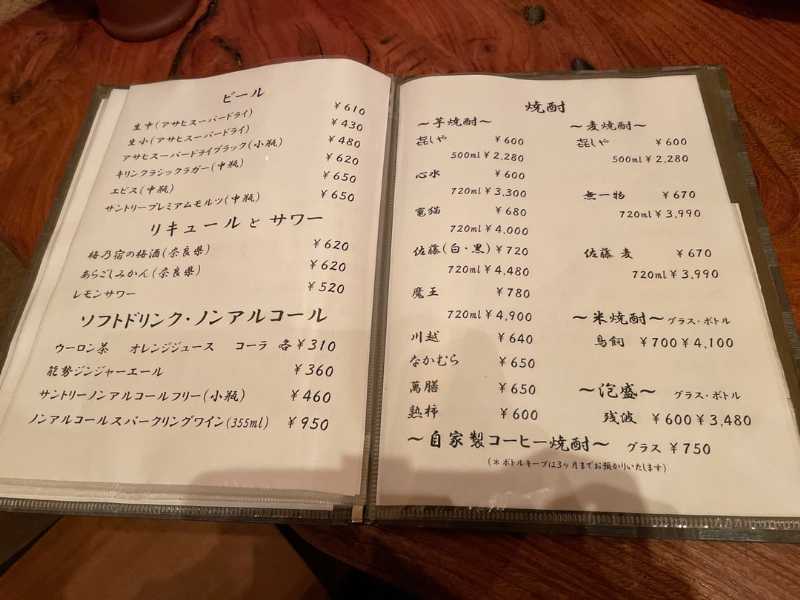 ビール
生中(アサヒスーパードライ) ¥610
生小(アサヒスーパードライ) ¥430
アサヒスーパードライブラック(小瓶) ¥480
キリンクラシックラガー(中瓶) ¥620
エビス(中瓶) ¥650
サントリープレミアムモルツ(中瓶) ¥650
リキュールとサワー
梅乃宿の梅酒(奈良県) ¥620
あらごしみかん(奈良県) ¥620
レモンサワー ¥520
ソフトドリンク・ノンアルコール
ウーロン茶 オレンジジュース コーラ 各¥310
能勢ジンジャーエール ¥360
サントリーノンアルコールフリー(小瓶) ¥460
ノンアルコールスパークリングワイン(355ml) ¥950
焼酎
〜芋焼酎〜
㐂しや ¥600
500ml¥2,280
心水 ¥600
720ml¥3,300
竜猫 ¥680
720ml¥4,000
佐藤(白・黒)¥720
720ml¥4,480
魔王 ¥780
720ml¥4,900
川越 ¥640
なかむら ¥650
萬膳 ¥650
熟柿 ¥600
〜麦焼酎〜
㐂しや ¥600
500ml¥2,280
無一物 ¥670
720ml¥3,990
佐藤 麦 ¥670
720ml¥3,990
〜米焼酎〜 グラス・ボトル
鳥飼 ¥700¥4,100
〜泡盛〜 グラス・ボトル
残波 ¥600¥3,480
〜自家製コーヒー焼酎〜 グラス ¥750
(※ボトルキープは3ヶ月までお預かりいたします)